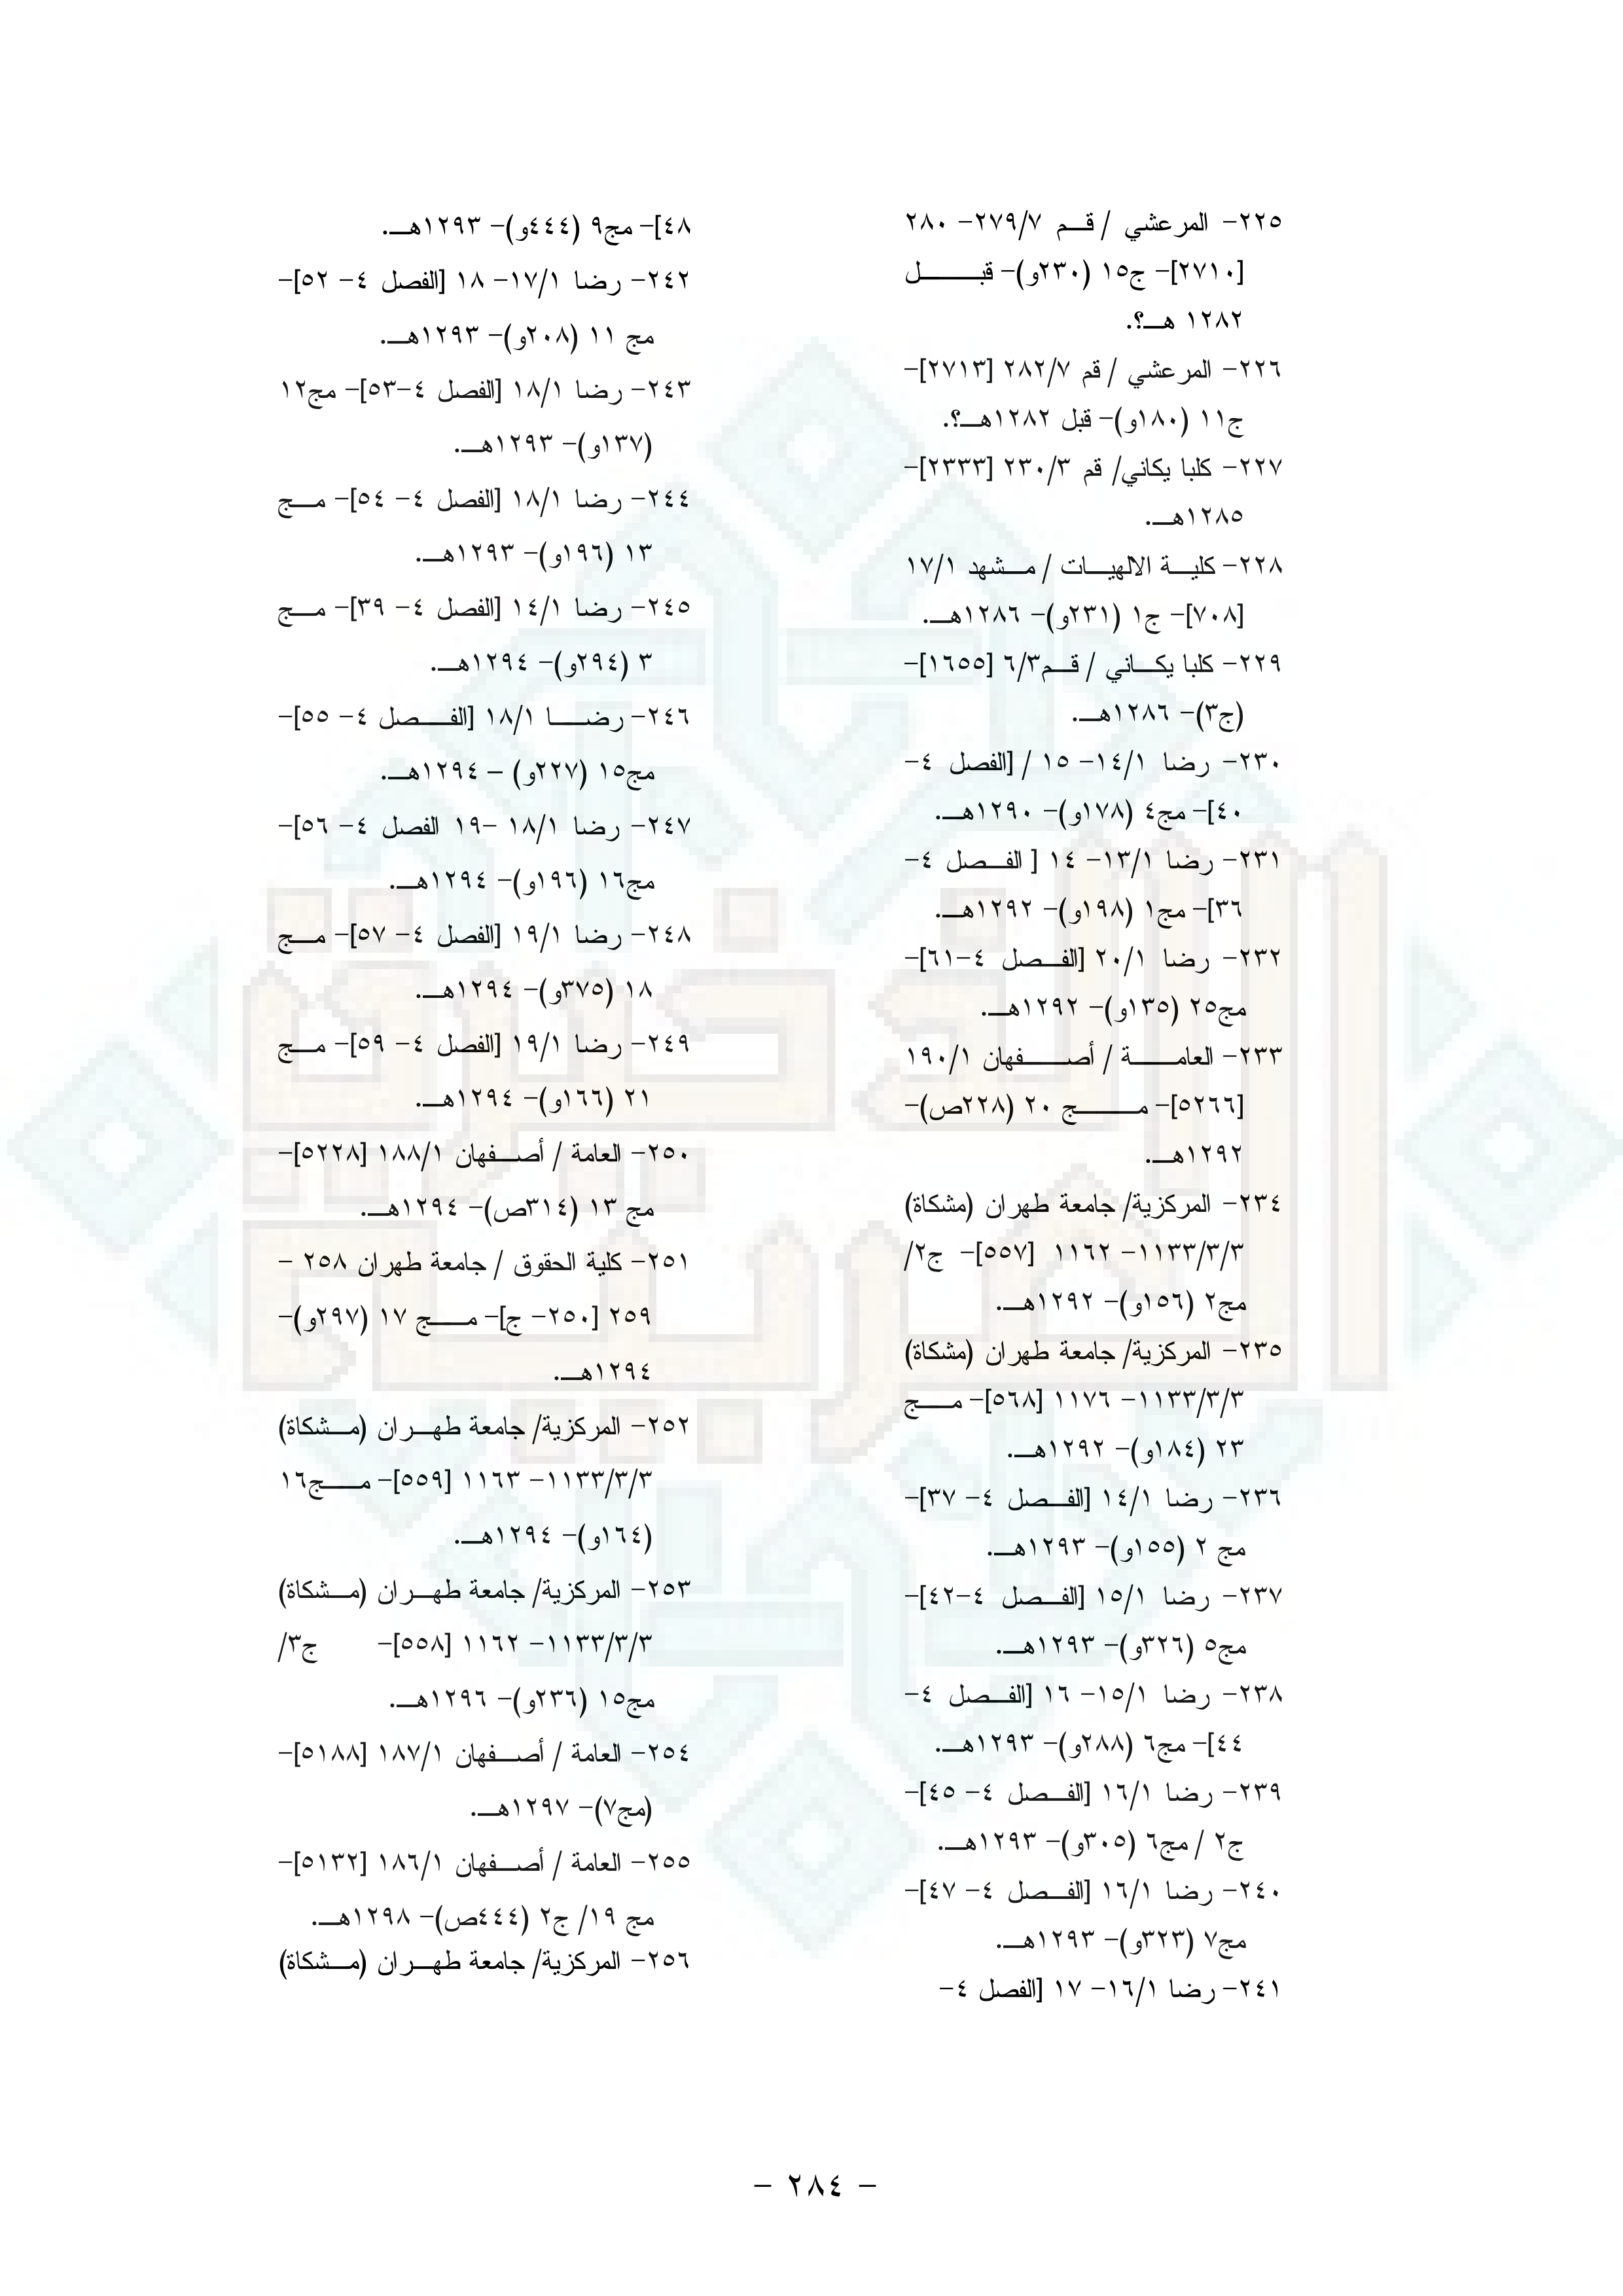 ٢٢٥- المرعشي / قم ٢٧٩/٧- ٢٨٠
[٢٧١٠]- ج١٥ (٢٣٠و)- قبل
١٢٨٢ هـ؟.
٢٢٦- المرعشي / قم ٢٨٢/٧ [٢٧١٣]-
ج١١ (١٨٠و)- قبل ١٢٨٢هـ؟.
٢٢٧- كلبا يكاني/ قم ٢٣٠/٣ [٢٣٣٣]-
١٢٨٥هـ.
٢٢٨- كلية الالهيات / مشهد ١٧/١
[٧٠٨]- ج١ (٢٣١و)- ١٢٨٦هـ.
٢٢٩- كلبا يكاني / قم٦/٣ [١٦٥٥]-
(ج٣)- ١٢٨٦هـ.
٢٣٠- رضا ١٤/١- ١٥ / [الفصل ٤-
٤٠]- مج٤ (١٧٨و)- ١٢٩٠هـ.
٢٣١- رضا ١٣/١- ١٤ [ الفصل ٤-
٣٦]- مج١ (١٩٨و)- ١٢٩٢هـ.
٢٣٢- رضا ٢٠/١ [الفصل ٤-٦١]-
مج٢٥ (١٣٥و)- ١٢٩٢هـ.
٢٣٣- العامة / أصفهان ١٩٠/١
[٥٢٦٦]- مج ٢٠ (٢٢٨ص)-
١٢٩٢هـ.
٢٣٤- المركزية/ جامعة طهران (مشكاة)
١١٣٣/٣/٣- ١١٦٢ [٥٥٧]- ج٢/
مج٢ (١٥٦و)- ١٢٩٢هـ.
٢٣٥- المركزية/ جامعة طهران (مشكاة)
١١٣٣/٣/٣- ١١٧٦ [٥٦٨]- مج
٢٣ (١٨٤و)- ١٢٩٢هـ.
٢٣٦- رضا ١٤/١ [الفصل ٤- ٣٧]-
مج ٢ (١٥٥و)- ١٢٩٣هـ.
٢٣٧- رضا ١٥/١ [الفصل ٤-٤٢]-
مج٥ (٣٢٦و)- ١٢٩٣هـ.
٢٣٨- رضا ١٥/١- ١٦ [الفصل ٤-
٤٤]- مج٦ (٢٨٨و)- ١٢٩٣هـ.
٢٣٩- رضا ١٦/١ [الفصل ٤- ٤٥]-
ج٢ / مج٦ (٣٠٥و)- ١٢٩٣هـ.
٢٤٠- رضا ١٦/١ [الفصل ٤- ٤٧]-
مج٧ (٣٢٣و)- ١٢٩٣هـ.
٢٤١- رضا ١٦/١- ١٧ [الفصل ٤-
٤٨]- مج٩ (٤٤٤و)- ١٢٩٣هـ.
٢٤٢- رضا ١٧/١- ١٨ [الفصل ٤- ٥٢]-
مج ١١ (٢٠٨و)- ١٢٩٣هـ.
٢٤٣- رضا ١٨/١ [الفصل ٤-٥٣]- مج١٢
(١٣٧و)- ١٢٩٣هـ.
٢٤٤- رضا ١٨/١ [الفصل ٤- ٥٤]- مج
١٣ (١٩٦و)- ١٢٩٣هـ.
٢٤٥- رضا ١٤/١ [الفصل ٤- ٣٩]- مج
٣ (٢٩٤و)- ١٢٩٤هـ.
٢٤٦- رضا ١٨/١ [الفصل ٤- ٥٥]-
مج١٥ (٢٢٧و) – ١٢٩٤هـ.
٢٤٧- رضا ١٨/١ -١٩ الفصل ٤- ٥٦]-
مج١٦ (١٩٦و)- ١٢٩٤هـ.
٢٤٨- رضا ١٩/١ [الفصل ٤- ٥٧]- مج
١٨ (٣٧٥و)- ١٢٩٤هـ.
٢٤٩- رضا ١٩/١ [الفصل ٤- ٥٩]- مج
٢١ (١٦٦و)- ١٢٩٤هـ.
٢٥٠- العامة / أصفهان ١٨٨/١ [٥٢٢٨]-
مج ١٣ (٣١٤ص)- ١٢٩٤هـ.
٢٥١- كلية الحقوق / جامعة طهران ٢٥٨ -
٢٥٩ [٢٥٠- ج]- مج ١٧ (٢٩٧و)-
١٢٩٤هـ.
٢٥٢- المركزية/ جامعة طهران (مشكاة)
١١٣٣/٣/٣- ١١٦٣ [٥٥٩]- مج١٦
(١٦٤و)- ١٢٩٤هـ.
٢٥٣- المركزية/ جامعة طهران (مشكاة)
١١٣٣/٣/٣- ١١٦٢ [٥٥٨]- ج٣/
مج١٥ (٢٣٦و)- ١٢٩٦هـ.
٢٥٤- العامة / أصفهان ١٨٧/١ [٥١٨٨]-
(مج٧)- ١٢٩٧هـ.
٢٥٥- العامة / أصفهان ١٨٦/١ [٥١٣٢]-
مج ١٩/ ج٢ (٤٤٤ص)- ١٢٩٨هـ.
٢٥٦- المركزية/ جامعة طهران (مشكاة)
- ٢٨٤ -